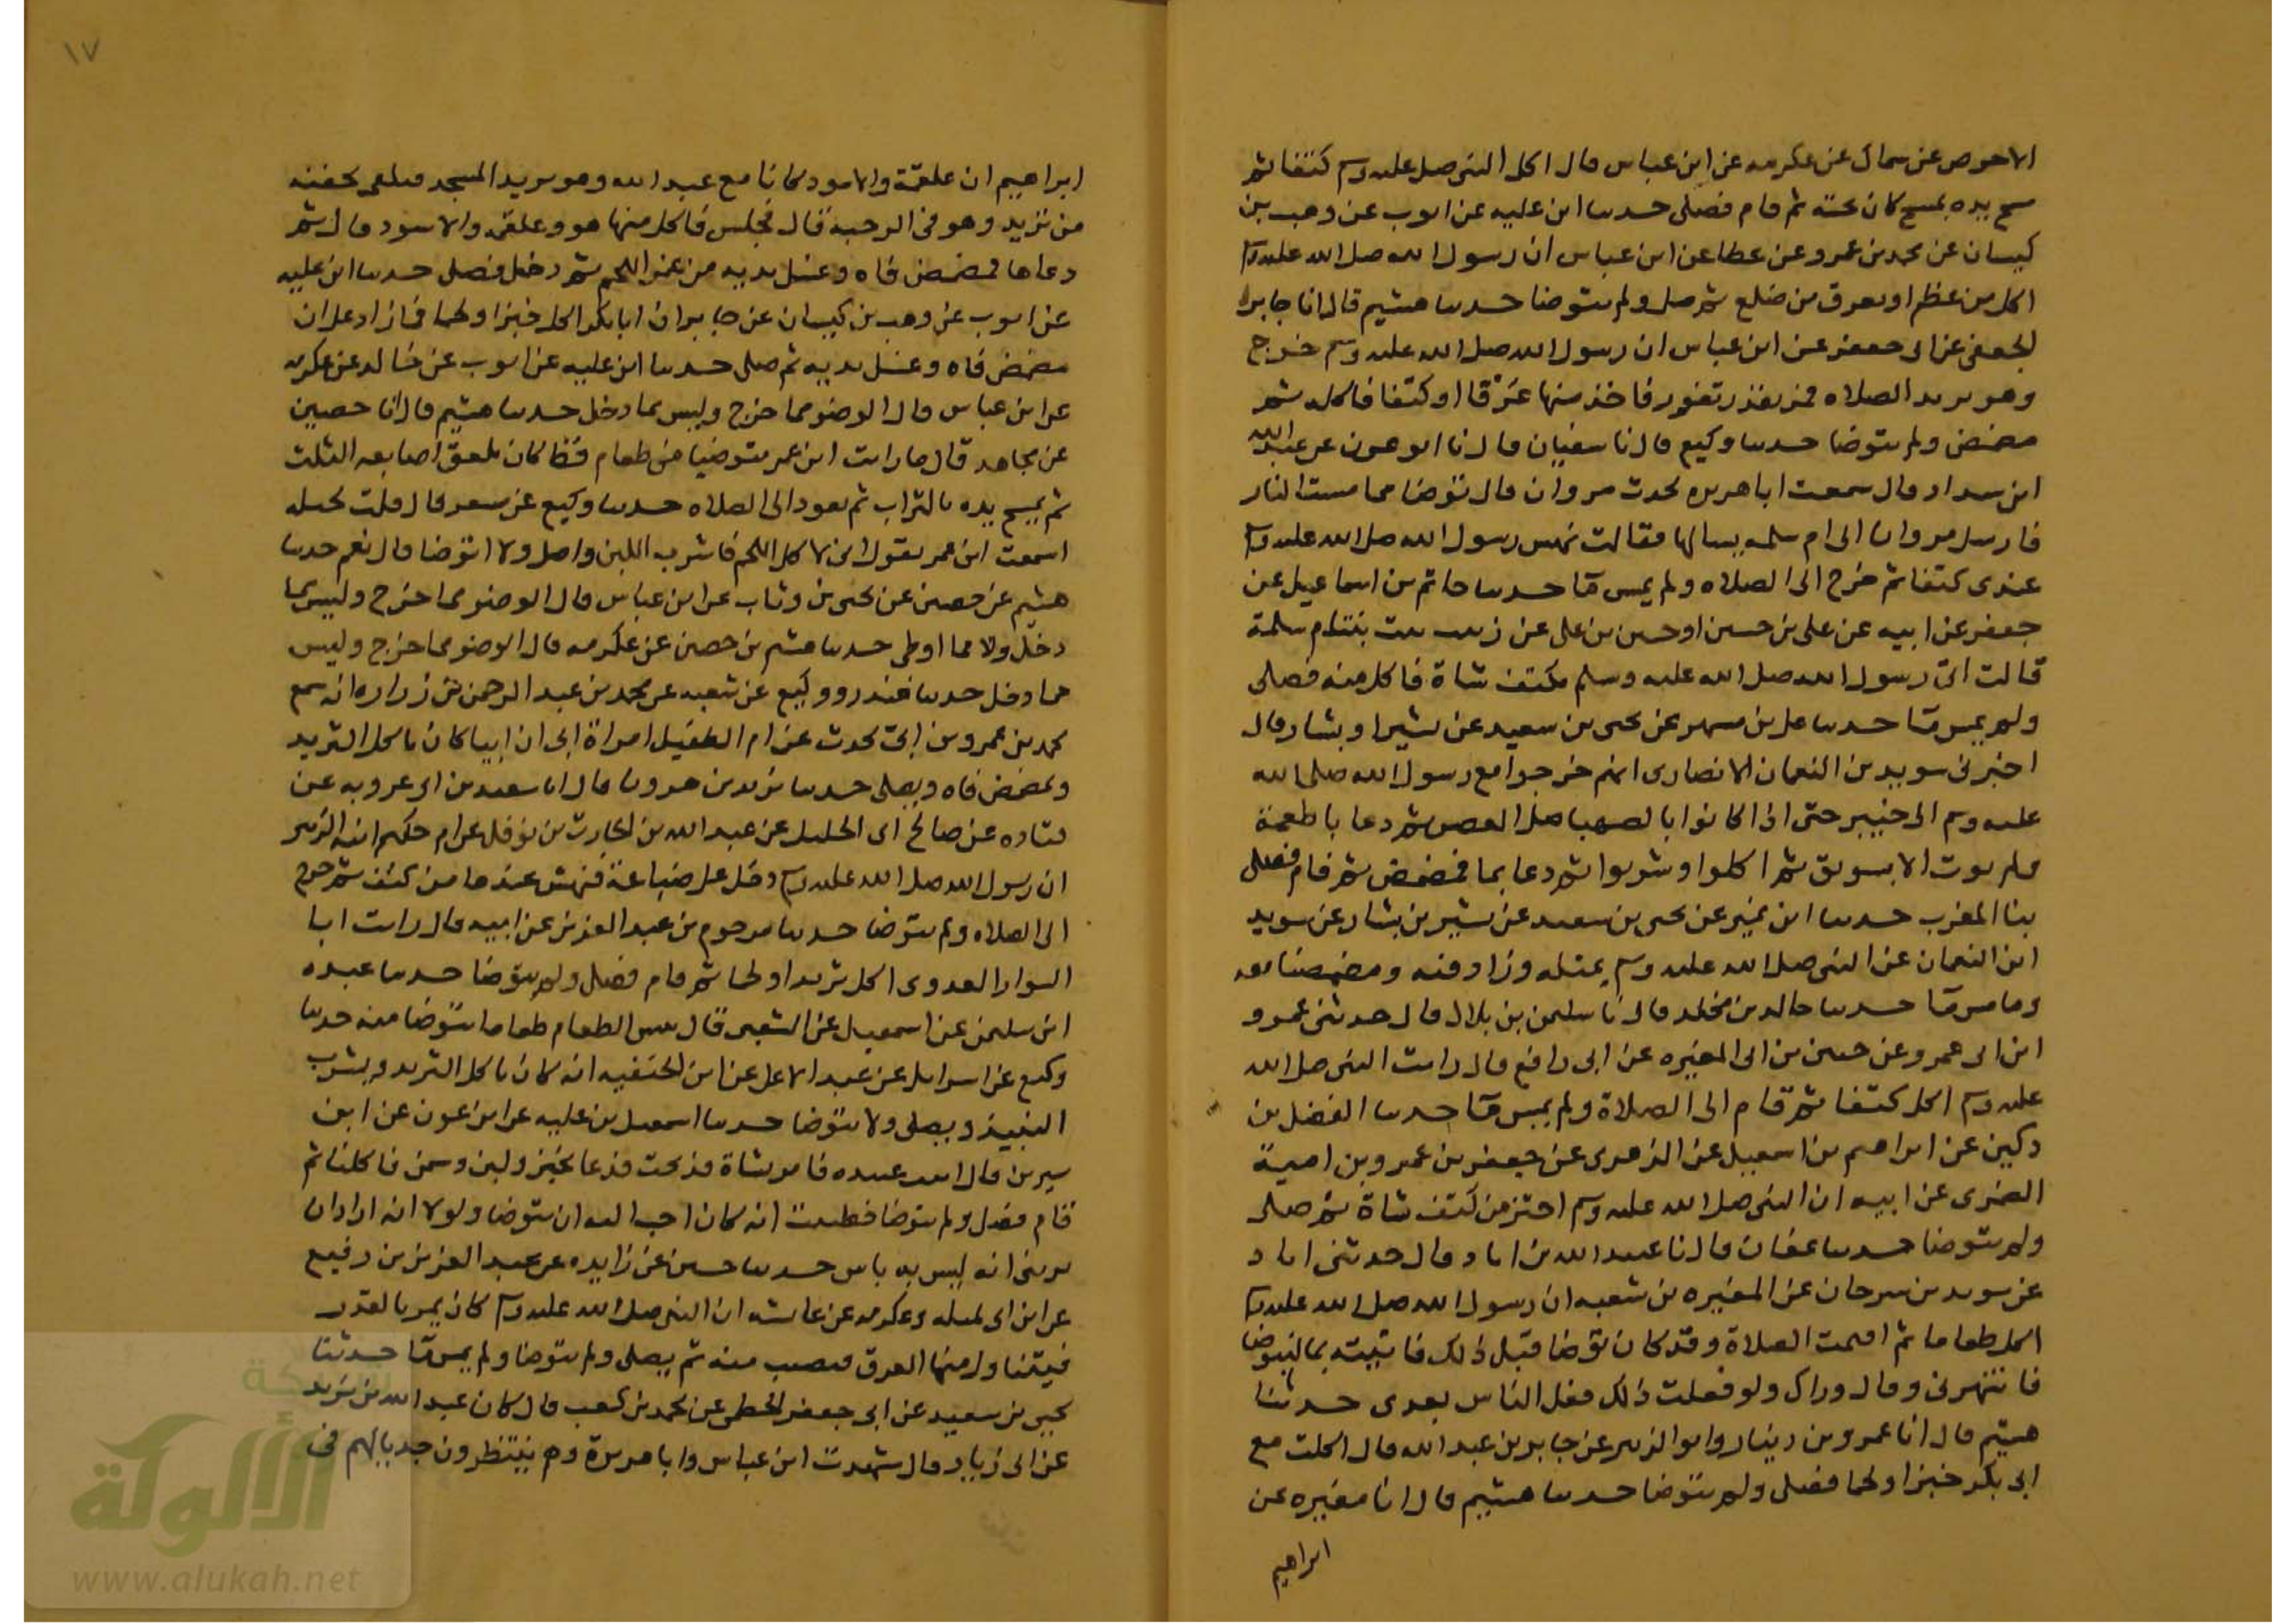 الاحوص عن سماك عن عكرمه عن ابن عباس قال اكل النبى صلى عليه وسم كتفا ثم
مسح يده بمسح كان تحته ثم قام فصلى حدثنا ابن عليه عن ايوب عن وهب بن
كيسان عن محمد بن عمرو عن عطا عن ابن عباس ان رسول الله صلى الله عليه وسم
اكل من عظم او تعرق من ضلع ثم صلى ولم يتوضا حدثنا هشيم قال انا جابر
الجعفى عن ابى جعفر عن ابن عباس ان رسول الله صلى الله عليه وسم خرج
وهو يريد الصلاه فمر بقدر تفور فاخذ منها عَرْقا او كتفا فاكله ثم
مضمض ولم يتوضا حدثنا وكيع قال نا سفيان قال نا ابو عون عن عبد الله
ابن شداد قال سمعت ابا هريره يحدث مروان قال توضا مما مست النار
فارسل مروان الى ام سلمه يسالها فقالت نهس رسول الله صلى الله عليه وسم
عندى كتفا ثم خرج الى الصلاه ولم يمس مآ حدثنا حاتم بن اسماعيل عن
جعفر عن ابيه عن على بن حسين او حسين بن على عن زينب بنت ام سلمة
قالت اتى رسول الله صلى الله عليه وسلم بكتف شاة فاكل منه فصلى
ولم يمس مآ حدثنا على بن مسهر عن يحيى بن سعيد عن بشير او بشار قال
اخبرنى سويد بن النعمان الانصارى انهم خرجوا مع رسول الله صلى الله
عليه وسم الى خيبر حتى اذا كانوا بالصهبا صلى العصر ثم دعا باطعمة
فلم يوت الا بسويق ثم اكلوا وشربوا ثم دعا بما فمضمض ثم قام فصلى
بنا المغرب حدثنا ابن نمير عن يحيى بن سعيد عن بشير بن بشار عن سويد
ابن النعمان عن النبى صلى الله عليه وسم بمثله وزاد فيه ومضمضنا معه
وما مس مآ حدثنا خالد بن مخلد قال نا سليمن بن بلال قال حدثنى عمرو
ابن ابى عمرو عن حنين بن ابى المغيره عن ابى رافع قال رايت النبى صلى الله
عليه وسم اكل كتفا ثم قام الى الصلاة ولم يمس مآ حدثنا الفضل بن
دكين عن ابراهيم بن اسمعيل عن الزهرى عن جعفر بن عمرو بن امية
الضمرى عن ابيه ان النبى صلى الله عليه وسم احتز من كتف شاة ثم صلى
ولم يتوضا حدثنا عفان قال نا عبيد الله بن اياد قال حدثنى اياد
عن سويد بن سرحان عن المغيره بن شعبه ان رسول الله صلى الله عليه وسم
اكل طعاما ثم اقيمت الصلاة وقد كان توضا قبل ذلك فاتيته بما ليتوضا
فانتهرنى وقال وراك ولو فعلت ذلك فعل الناس بعدى حدثنا
هشيم قال انا عمرو بن دينار وابو الزبير عن جابر بن عبد الله قال اكلت مع
ابى بكر خبزا ولحما فصلى ولم يتوضا حدثنا هشيم قال انا مغيره عن
ابراهيم
١٧
ابراهيم ان علقمة والاسود كانا مع عبد الله وهو يريد المسجد فتلقى بجفنه
من ثريد وهو فى الرحبه قال فجلس فاكل منها هو وعلقمه والاسود قال ثم
دعا بما فمضمض فاه وغسل يديه من غمر اللحم ثم دخل فصلى حدثنا ابن عليه
عن ايوب عن وهب بن كيسان عن جابر ان ابا بكر اكل خبزا ولحما فما زاد على ان
مضمض فاه وغسل يديه ثم صلى حدثنا ابن عليه عن ايوب عن خالد عن عكرمه
عن ابن عباس قال الوضو مما خرج وليس مما دخل حدثنا هشيم قال انا حصين
عن مجاهد قال ما رايت ابن عمر متوضيا من طعام قط كان يلعق اصابعه الثلث
ثم يمسح يده بالتراب ثم يعود الى الصلاه حدثنا وكيع عن مسعر قال قلت لجبله
اسمعت ابن عمر يقول انى لا كل اللحم فاشرب اللبن واصلى ولا اتوضا قال نعم حدثنا
هشيم عن حصين عن يحيى بن وثاب عن ابن عباس قال الوضو مما خرج وليس مما
دخل ولا مما اوطى حدثنا هشيم بن حصين عن عكرمه قال الوضو مما خرج وليس
مما دخل حدثنا غندر ووكيع عن شعبه عن محمد بن عبد الرحمن بن زراره انه سمع
محمد بن عمرو بن ابى يحدث عن ام الطفيل امراة ابى ان ابيا كان ياكل الثريد
ويمضمض فاه ويصلى حدثنا يزيد بن هرون قال انا سعيد بن ابى عروبه عن
قتاده عن صالح ابى الخليل عن عبد الله بن الحارث بن نوفل عن ام حكيم ابنة الزبير
ان رسول الله صلى الله عليه وسم دخل على ضباعة فنهش عندها من كتف ثم خرج
الى الصلاه ولم يتوضا حدثنا مرحوم بن عبد العزيز عن ابيه قال رايت ابا
السوار العدوى اكل ثريدا ولحما ثم قام فصلى ولم يتوضا حدثنا عبده
ابن سليمن عن اسمعيل عن الشعبى قال بيس الطعام طعاما يتوضا منه حدثنا
وكيع عن اسرايل عن عبد الاعلى عن ابن الحنفيه انه كان ياكل الثريد ويشرب
النبيذ ويصلى ولا يتوضا حدثنا اسمعيل بن عليه عن ابن عون عن ابن
سيرين قال اتيت عبيده فامر بشاة فذبحت فدعا بخبز ولبن وسمن فاكلنا ثم
قام فصلى ولم يتوضا فظننت انه كان احب اليه ان يتوضا ولولا انه اراد ان
يرينى انه ليس به باس حدثنا حسين عن زايده عن عبد العزيز بن رفيع
عن ابن ابى مليكه وعكرمه عن عايشه ان النبى صلى الله عليه وسم كان يمر بالقدر
فيتناول منها العرق فيصيب منه ثم يصلى ولم يتوضا ولم يمس مآ حدثنا
يحيى بن سعيد عن ابى جعفر الخطمى عن محمد بن كعب قال كان عبد الله بن يزيد
عن ابى زياد قال شهدت ابن عباس وابا هريرة وهم ينتظرون جديا لهم فى
شبكة
الألوكة
www.alukah.net